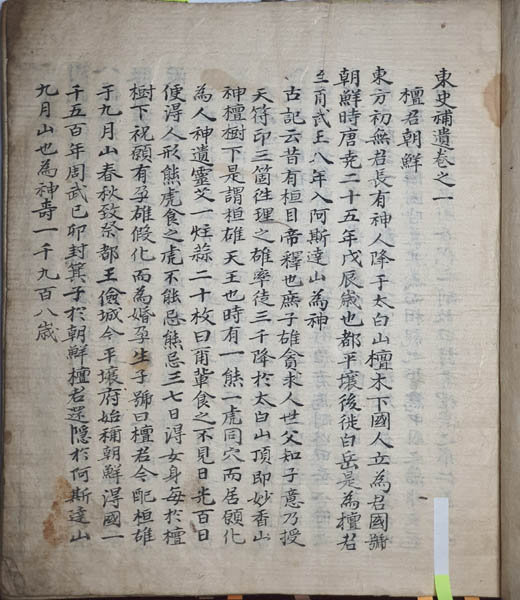 東史補遺卷之一
檀君朝鮮
東方初無君長有神人降于太白山檀木下國人立為君國號
朝鮮時唐堯二十五年戊辰歲也都平壤後徙白岳是為檀君
至商武王八年入阿斯達山為神
古記云昔有桓因帝釋也庶子雄貪求人世父知子意乃授
天符印三箇徃理之雄率徒三千降於太白山頂即妙香山
神檀樹下是謂桓雄天王也時有一熊一虎同穴而居願化
為人神遺靈艾一炷蒜二十枚曰爾軰食之不見日光百日
便得人形熊虎食之虎不能忌熊忌三七日得女身每於檀
樹下祝願有孕雄假化而為婚孕生子號曰檀君令配桓雄
于九月山春秋致祭都王儉城今平壤府始稱朝鮮得國一
千五百年周武己卯封箕子於朝鮮檀君還隱於阿斯達山
九月山也為神壽一千九百八歲